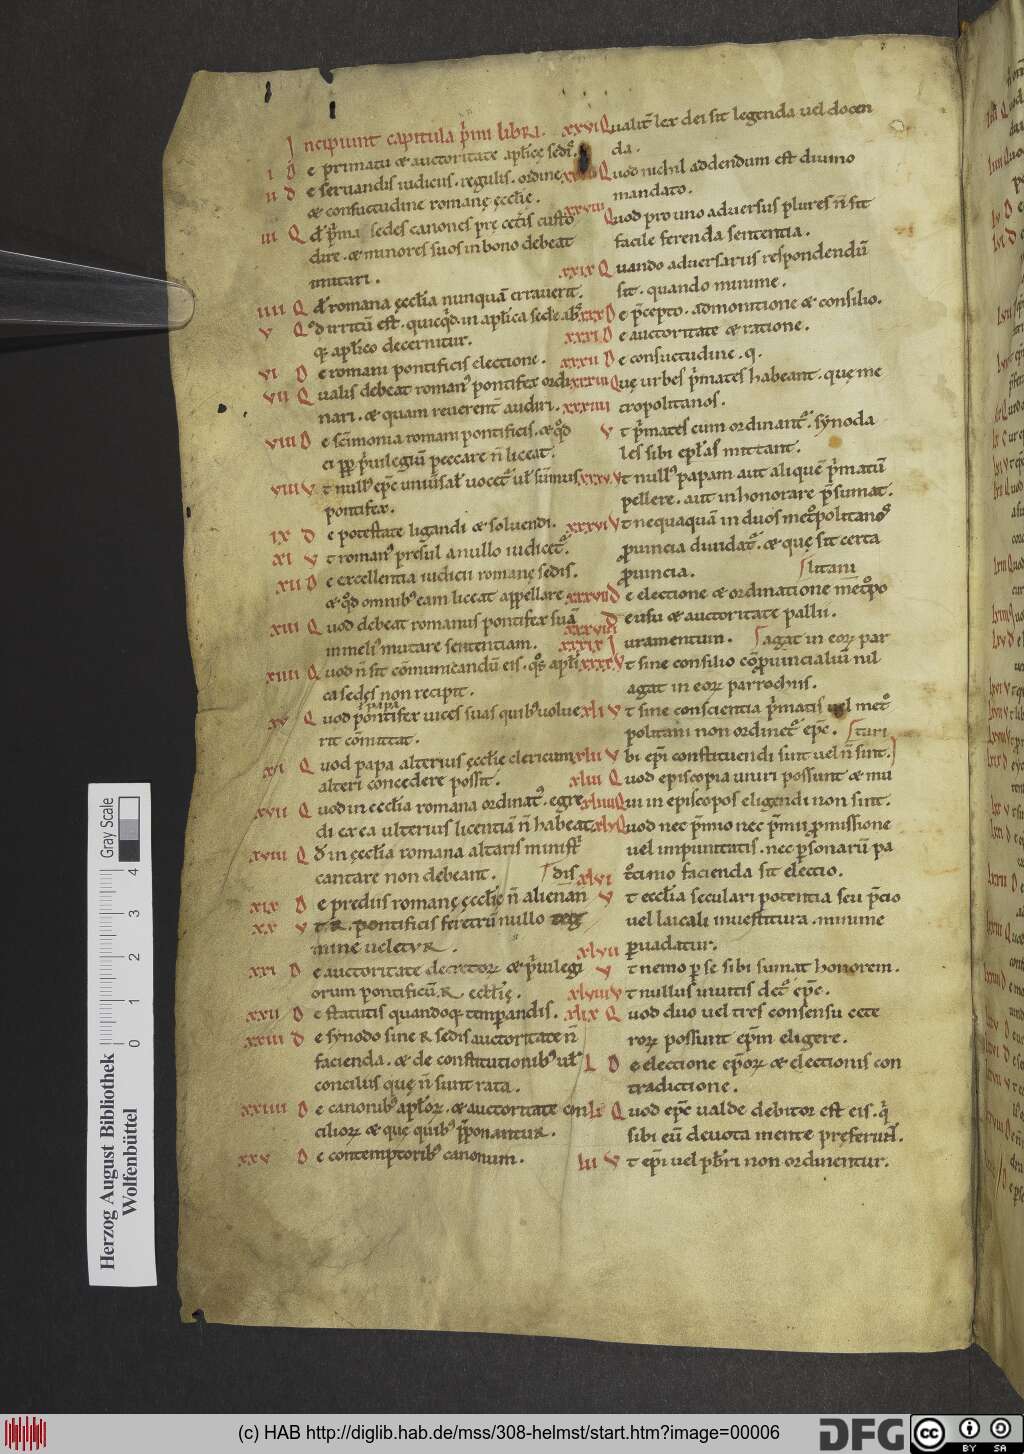 Incipiunt capitula p̄mi libri.
i De primatu & auctoritate apl̄icę sedis.
ii De seruandis iudiciis. regulis. ordine
& consuetudine romanę ęcclie.
iii Qd p̄ma sedes canones pre cęt̄is custo
dire. & minores suos in bono debeat
imitari.
iiii Qd romana ęccl̄ia nunquā errauerit.
v Qd irritū est. quicq̄d in apl̄ica sede absq̄
q apl̄ico decernitur.
vi De romani pontificis electione.
vii Qualis debeat roman' pontifex ordi
nari. & quam reuerent̄ audiri.
viii De sc̄imonia romani pontificis. & qd
ei pp p̄uilegiū peccare n̄ liceat.
viiii Vt null' ep̄c uniūsal' uocet᷑ ul' sūmus
pontifex.
ix De potestate ligandi & soluendi.
xi Vt roman' presul a nullo iudicet᷑.
xii De excellentia iudicii romanę sedis.
& qd omnib' eam liceat appellare
xiii Quod debeat romanus pontifex suā
in meli' mutare sententiam.
xiiii Quod n̄ sit cōmunicandū eis. qs apl̄i
ca sedes non recipit.
papa
xv Quod pontifex uices suas quib' uolue
rit cōmittat.
xvi Quod papa alterius ęccl̄ie clericum
alteri concedere possit.
xvii Quod in eccl̄ia romana ordinat'. egre
di ex ea ulterius licentiā n̄ habeat.
xviii Qd in ęccl̄ia romana altaris minist᷑
cantare non debeant. dis
xix De prediis romanę ęccl̄ię n̄ alienan
xx Vt .R. pontificis feretrū nullo teg
mine ueletur.
xxi De auctoritate decretoꝝ & p̄uilegi
orum pontificū. R. eccl̄ię.
xxii De statutis quandoq; temꝑandis.
xxiii De synodo sine R sedis auctoritate n̄
facienda. & de constitutionib' ul'
conciliis quę n̄ sunt rata.
xxiiii De canonib' apl̄oꝝ. & auctoritate con
cilioꝝ & quę quib' p̄ponantur.
xxv De contemptorib' canonum.
xxvi Qualit̄ lex dei sit legenda uel docen
da.
Quod nichil addendum est diuino
mandato.
xxviii Quod pro uno aduersus plures n̄ sit
facile ferenda sententia.
xxix Quando aduersarius respondendū
sit. quando minime.
xxx De p̄cepto. admonitione & consilio.
xxxi De auctoritate & ratione.
xxxii De consuetudine. q.
xxxiii Quę urbes p̄mates habeant. quę me
xxxiiii tropolitanos.
Vt p̄mates eum ordinant᷑. synoda
les sibi epl̄as mittant.
xxxv Vt null' papam aut aliquē p̄matū
pellere. aut inhonorare p̄sumat.
xxxvi Vt nequaquā in duos met᷑politanos
ꝓuincia diuidat᷑. & quę sit certa
ꝓuincia. litani
xxxvii De electione & ordinatione met᷑opo
xxxviii De usu & auctoritate pallii.
xxxix Iuramentum. agat in eoꝝ par
xxxx Vt sine consilio cōꝓuincialiū nil
agat in eoꝝ parrochiis.
xli Vt sine conscientia p̄matis uel met᷑o
politani non ordinet᷑ ep̄c. turi
xlii Vbi ep̄i constituendi sunt uel n̄ sint.
xliii Quod episcopia uniri possunt & mu
xliiii Qui in episcopos eligendi non sint.
xlv Quod nec p̄mio nec p̄mii ꝓmissione
uel impunitatis. nec ꝑsonarū pa
xlvi t᷑cinio facienda sit electio.
Vt eccl̄ia seculari potentia seu p̄cio
uel laicali inuestitura. minime
xlvii ꝑuadatur.
Vt nemo ꝑ se sibi sumat honorem.
xlviii Vt nullus inuitis det᷑ ep̄c.
xlix Quod duo uel tres consensu cete
roꝝ possunt ep̄m eligere.
L De electione ep̄oꝝ & electionis con
tradictione.
li Quod ep̄c ualde debitor est eis. q̄
sibi eū deuota mente pręferunt.
lii Vt ep̄i uel pb̄ri non ordinentur.
Gray Scale
0 1 2 3 4
Herzog August Bibliothek
Wolfenbüttel
(c) HAB http://diglib.hab.de/mss/308-helmst/start.htm?image=00006
DFG
cc BY SA